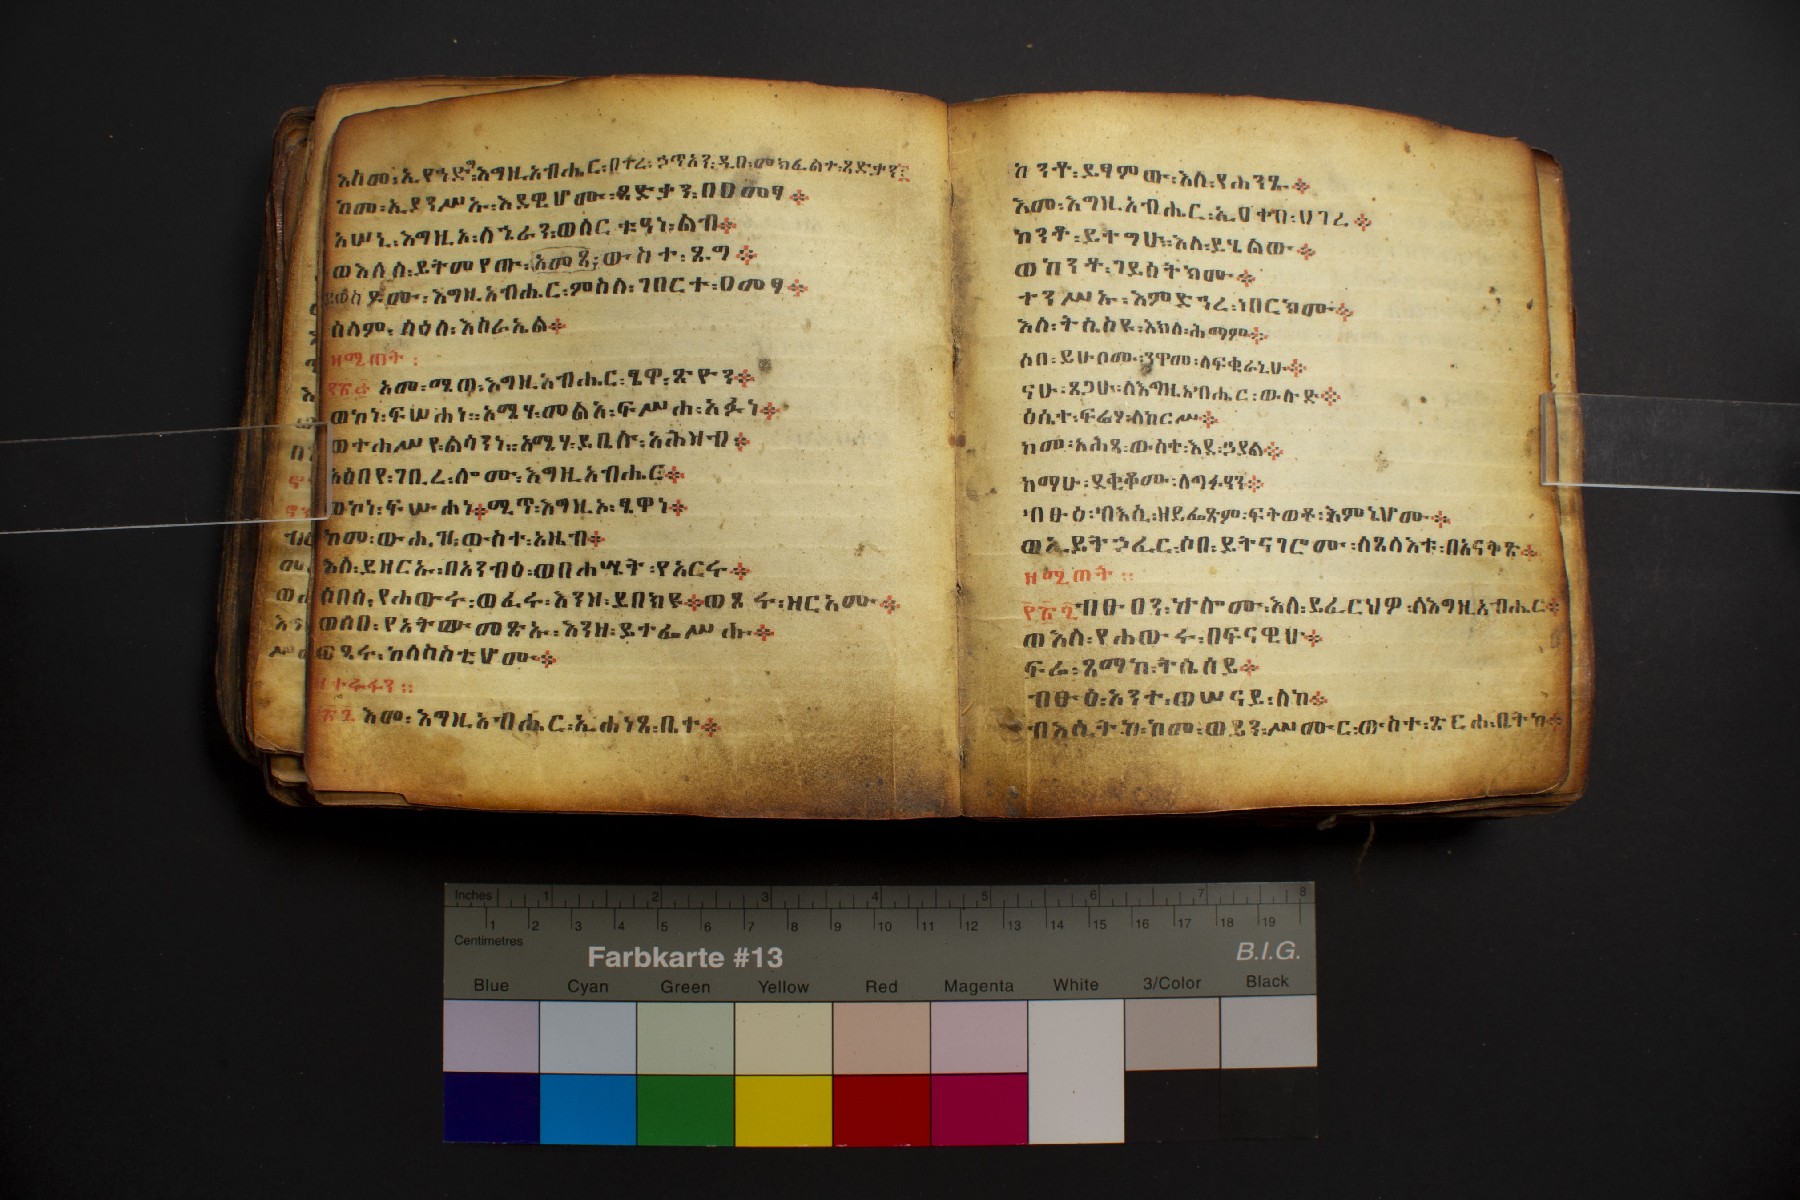 እስመ፡ኢየኀድ፡እግዚአብሔር፡በትረ፡ኃጥአን፡ዲበ፡መክፈልተ፡ጻድቃን፤
ከመ፡ኢያንሥኡ፡እደዊሆሙ፡ጻድቃን፡በዐመፃ፨
አሠኒ፡እግዚአ፡ለኄራን፡ወለርቱዓነ፡ልብ፨
ወእለሰ፡ይትመየጡ፡አመፃ፡ውስተ፡ጌጋ፨
ይወስዶሙ፡እግዚአብሔር፡ምስለ፡ገበርተ፡ዐመፃ፨
ሰላም፡ላዕለ፡እስራኤል፨
ዘሚጠት፡
አመ፡ሜጠ፡እግዚአብሔር፡ፄዋ፡ጽዮን፨
ወኮነ፡ፍሡሐነ፡፡አሜሃ፡መልአ፡ፍሥሐ፡አፉነ፨
ወተሐሥየ፡ልሳንነ፡፡አሜሃ፡ይቤሉ፡አሕዛብ፨
አዕበየ፡ገቢረ፡ሎሙ፡እግዚአብሔር፨
ወኮነ፡ፍሡሐነ፨ሚጥ፡እግዚኦ፡ፄዋነ፨
ከመ፡ውሒዝ፡ውስተ፡አዜብ፨
እለ፡ይዘርኡ፡በአንብዕ፡ወበሐሤት፡የአርሩ፨
ሶበሰ፡የሐውሩ፡ወፈሩ፡እንዘ፡ይበክዩ፨ወጾሩ፡ዘርአሙ፨
ወሶበ፡የአትዉ፡መጽኡ፡እንዘ፡ይተፌሥሑ፨
ፍጹሩ፡ከላስስቲሆሙ፨
ዘተሩፋን፡፡
፳፮ እመ፡እግዚአብሔር፡ኢሐነጸ፡ቤተ፨
ከንቶ፡ይፃምው፡እለ፡የሐንጹ፨
እመ፡እግዚአብሔር፡ኢዐቀበ፡ሀገረ፨
ከንቶ፡ይተግሁ፡እለ፡ይሄልው፨
ወከንቶ፡ገይስትክሙ፨
ተንሥኡ፡እምድኀረ፡ነበርክሙ፨
እለ፡ትሴሰዩ፡እክለ፡ሕማም፨
ሶበ፡ይሁቦሙ፡ንዋመ፡ለፍቁራኒሁ፨
ናሁ፡ጸጋሁ፡ለእግዚአብሔር፡ውሉድ፨
ዕሴተ፡ፍሬሃ፡ለከርሥ፨
ከመ፡አሕጻ፡ውስተ፡እደ፡ኃያል፨
ከማሁ፡ደቂቆሙ፡ለግፉዓን፨
ብፁዕ፡ብእሲ፡ዘይፌጽም፡ፍትወቶ፡እምኔሆሙ፨
ወኢይትኃፈር፡ሶበ፡ይትናገሮሙ፡ለጸላእቱ፡በአናቅጽ፨
ዘሚጠት፡፡
ብፁዐን፡ኵሎሙ፡እለ፡ይፈርህዎ፡ለእግዚአብሔር፨
ወእለ፡የሐውሩ፡በፍናዊሁ፨
ፍሬ፡ጻማከ፡ትሴሰይ፨
ብፁዕ፡አንተ፡ወሠናይ፡ለከ፨
ብእሲትከ፡ከመ፡ወይን፡ሥሙር፡ውስተ፡ጽርሐ፡ቤትከ፨
Inches 1 2 3 4 5 6 7 8
1 2 3 4 5 6 7 8 9 10 11 12 13 14 15 16 17 18 19
Centimetres
Farbkarte #13
B.I.G.
Blue Cyan Green Yellow Red Magenta White 3/Color Black